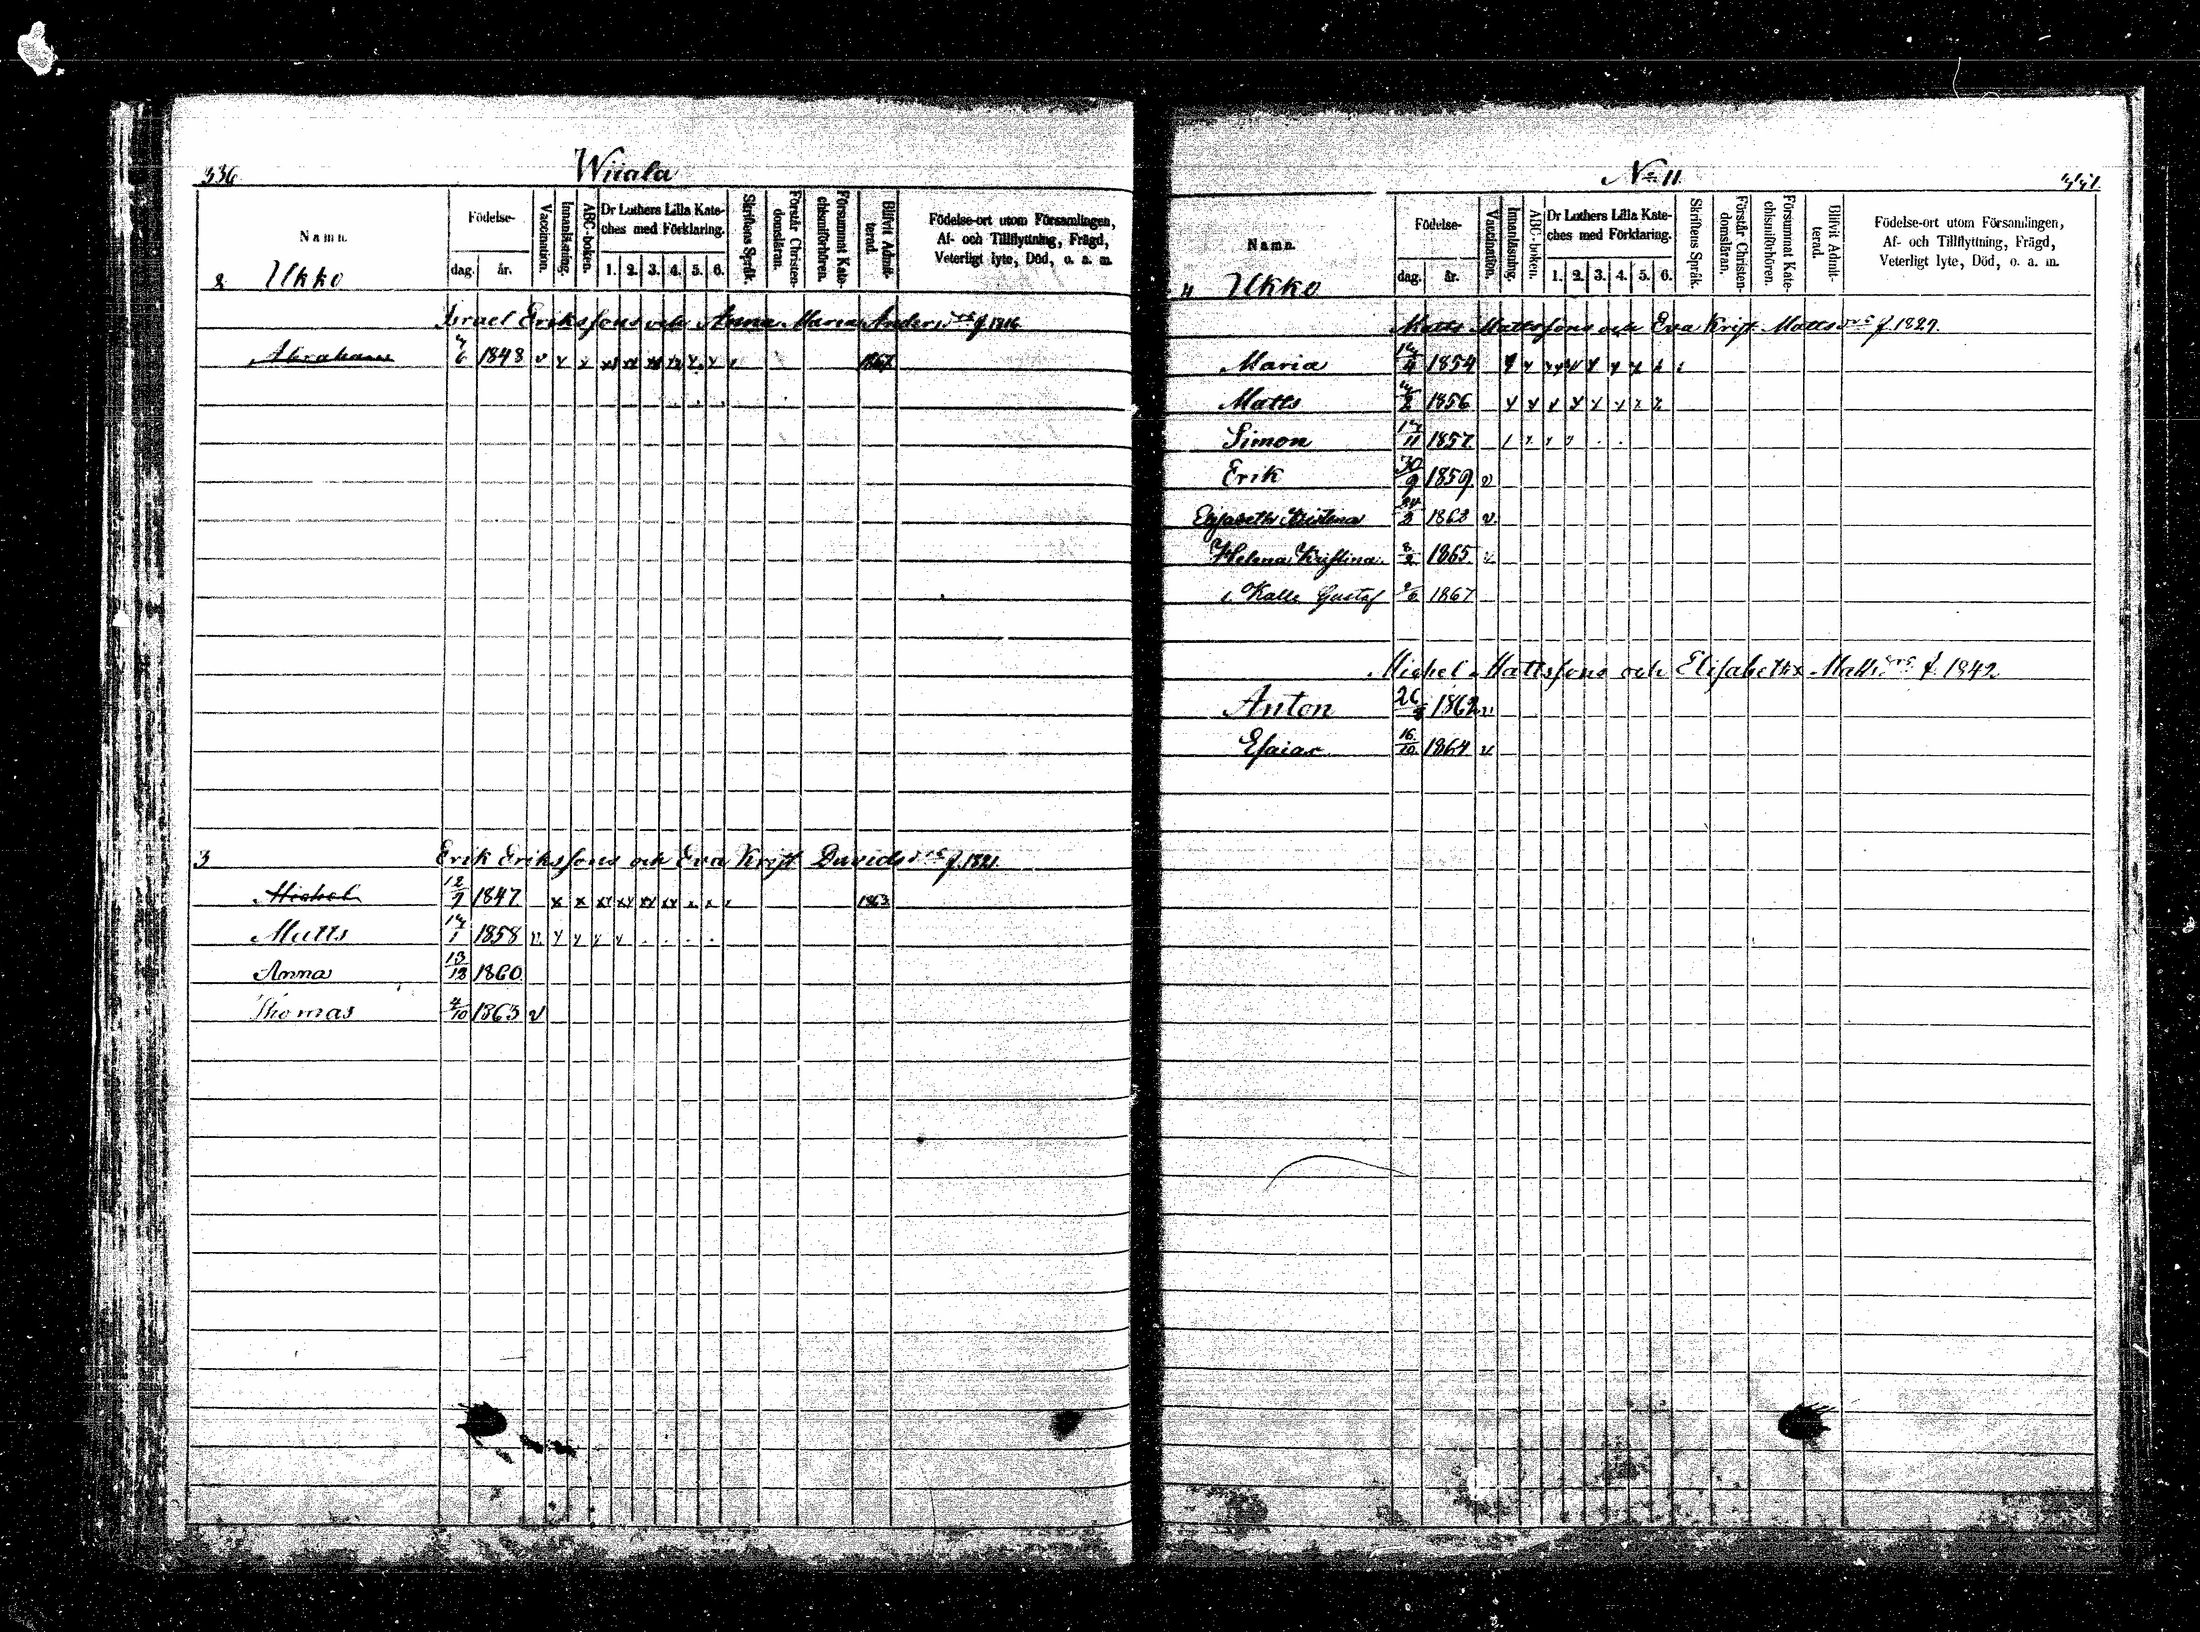 336.
Wiiala
Namn.
Födelse-
dag. år.
Vaccination.
Innanläsning.
ABC-boken.
Dr Luthers Lilla Kate-
ches med Förklaring.
1. 2. 3. 4. 5. 6.
Skriftens Språk.
Förstår Christen-
domsläran.
Försummat Kate-
chismiförhören.
Blifvit Admit-
terad.
Födelse-ort utom Församlingen,
Af- och Tillflyttning, Frägd,
Veterligt lyte, Död, o. a. m.
2 Ukko
Israel Eriksons och Anna Maria Anders drs f. 1816
Abraham 6 1848 v
3 Erik Eriksons och Eva Krist Davids drs f. 1821.
Michel 12/9 1847 1863
Matts 1858 v
Anna 13/12 1860
Thomas 4/10 1863 v
No 11.
Namn.
Födelse-
dag. år.
Vaccination.
Innanläsning.
ABC-boken.
Dr Luthers Lilla Kate-
ches med Förklaring.
1. 2. 3. 4. 5. 6.
Skriftens Språk.
Förstår Christen-
domsläran.
Försummat Kate-
chismiförhören.
Blifvit Admit-
terad.
Födelse-ort utom Församlingen,
Af- och Tillflyttning, Frägd,
Veterligt lyte, Död, o. a. m.
4 Ukko
Matts Mattssons och Eva Krist Matts drs f. 1827.
Maria 1854
Matts 1856
Simon 1857
Erik 30/9 1859 v
Elisabeth Kristina 1863 v.
Helena Kristina 1865 v
Kalle Gustaf 1867
Michel Mattssons och Elisabeth Matts drs f. 1842
Anton 26 1862 v
Esaias 16/10 1864 v